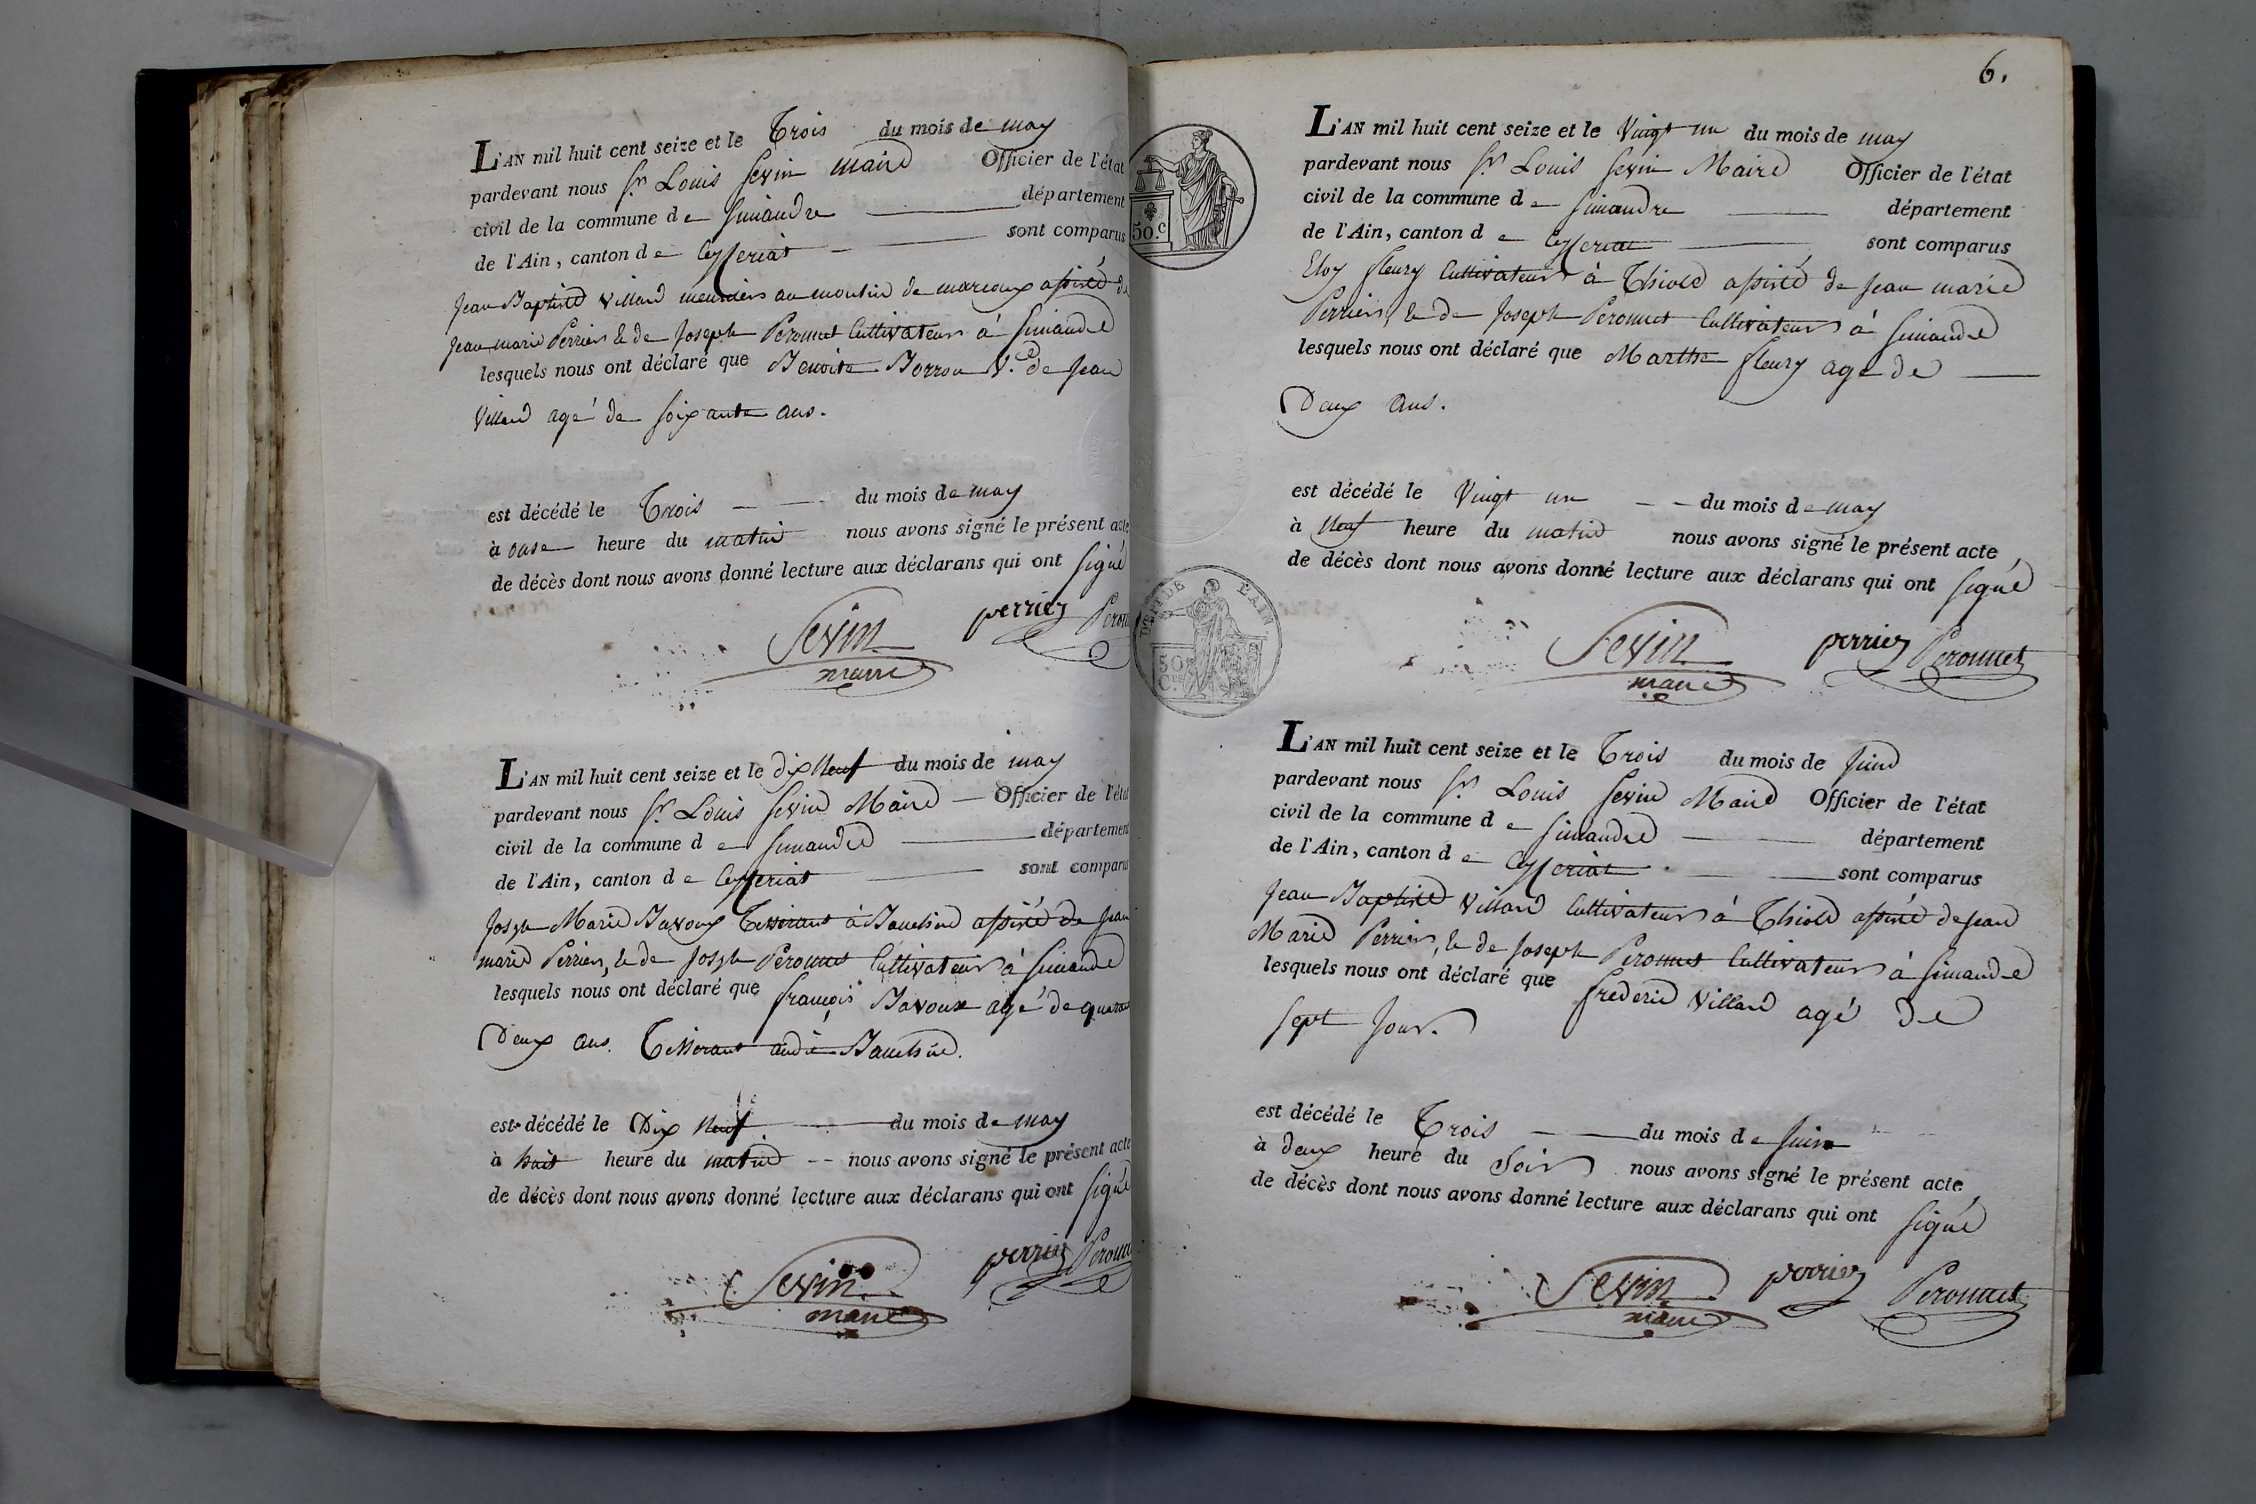 L'AN mil huit cent seize et le Trois du mois de may
pardevant nous Sr. Louis Sevin Maire Officier de l'état
civil de la commune de Simandre département
de l'Ain, canton de Ceyseriat sont comparus
Jean Baptiste Villard meunier au moulin de marcoux assisté de
Jean marie Perrier & de Joseph Peronnet Cultivateurs à Simandre
lesquels nous ont déclaré que Benoite Borron Ve. de Jean
Villard agé de soixante ans.
est décédé le Trois du mois de may
à onse heure du matin nous avons signé le présent acte
de décès dont nous avons donné lecture aux déclarans qui ont signé
Sevin perrier Peron
maire
L'AN mil huit cent seize et le dix neuf du mois de may
pardevant nous Sr. Louis Sevin Maire Officier de l'état
civil de la commune de Simandre département
de l'Ain, canton de Ceyseriat sont comparus
Joseph Marie Bavoux Tisserant à Banchin assisté de Jean
marie Perrier, & de Joseph Peronnet Cultivateurs à Simandre
lesquels nous ont déclaré que françois Bavoux agé de quarante
Deux ans. Tisserant audit Banchin.
est décédé le Dix neuf du mois de may
à huit heure du matin nous avons signé le présent acte
de décès dont nous avons donné lecture aux déclarans qui ont signé
Sevin perrier Peronn
maire
6.
50.c
DEPT DE L'AIN
50
C.
L'AN mil huit cent seize et le Vingt un du mois de may
pardevant nous Sr. Louis Sevin Maire Officier de l'état
civil de la commune de Simandre département
de l'Ain, canton de Ceyseriat sont comparus
Eloy fleury Cultivateur à Thiole assisté de Jean marie
Perrier, & de Joseph Peronnet Cultivateurs à Simandre
lesquels nous ont déclaré que Marthe fleury age de
Deux ans.
est décédé le Vingt un du mois de may
à Neuf heure du matin nous avons signé le présent acte
de décès dont nous avons donné lecture aux déclarans qui ont signé
Sevin perrier Peronnet
maire
L'AN mil huit cent seize et le Trois du mois de Juin
pardevant nous Sr. Louis Sevin Maire Officier de l'état
civil de la commune de Simandre département
de l'Ain, canton de Ceyseriat sont comparus
Jean Baptiste Villard Cultivateur à Thiole assisté de Jean
Marie Perrier, & de Joseph Peronnet Cultivateurs à Simandre
lesquels nous ont déclaré que frederic Villard agé de
sept Jour.
est décédé le Trois du mois de Juin
à deux heure du Soir nous avons signé le présent acte
de décès dont nous avons donné lecture aux déclarans qui ont signé
Sevin perrier Peronnet
maire